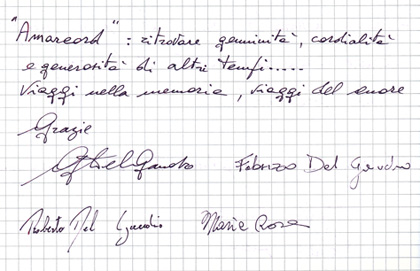 "Amarcord" : ritrovare genuinità, cordialità
e generosità di altri tempi.....
Viaggi nella memoria, viaggi del cuore
Grazie
Fabrizio Del Gaudio
Roberto Del Gaudio Maria Rosa